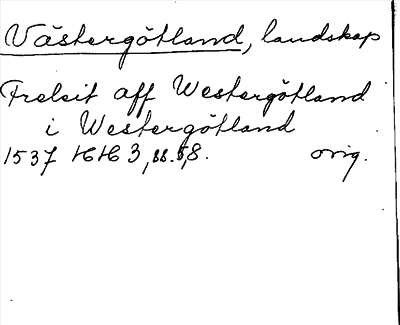 Västergötland, landskap
Freleit aff Westergötland
i Westergötland
1537 HH 3, ss. 5,8. orig.